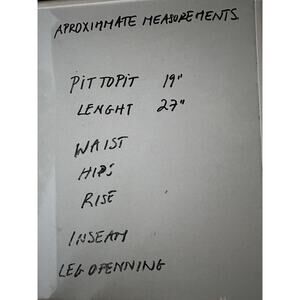 APROXIMMATE MEASUREMENTS
PIT TO PIT 19"
LENGHT 27"
WAIST
HIPS
RISE
INSEAM
LEG OPENNING